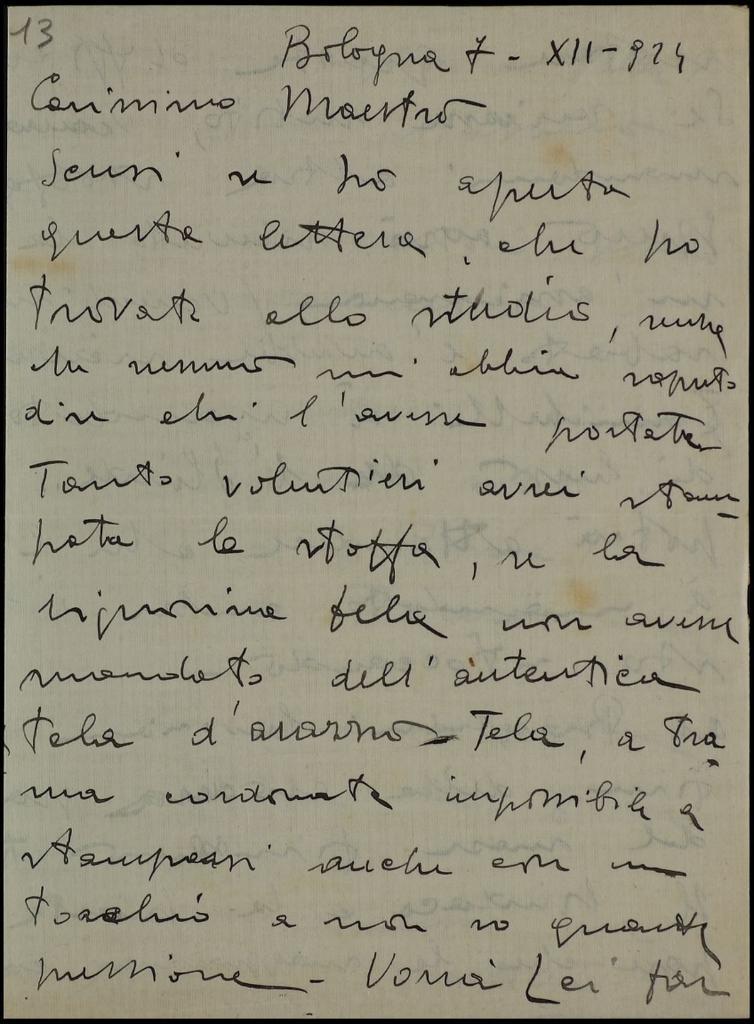 13
Bologna 7 - XII - 924
Carissimo Maestro
Scusi se ho aperta
questa lettera, che ho
trovata allo studio, senza
che nessuno mi abbia saputo
dire chi l'avesse portata
Tanto volentieri avrei stam-
pata la stoffa, se la
signorina fela non avesse
mandato dell'autentica
tela d'arazzo - Tela, a tra
ma cordonata impossibile a
stamparsi anche con un
torchio a non so quanta
pressione - Vorrà Lei far